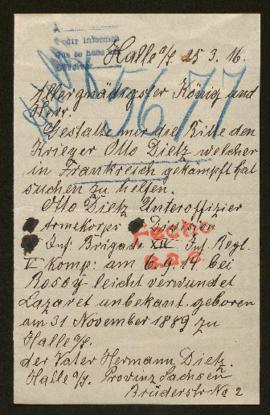 A
Halle a/S 25 3. 16.
5677
Allergnädigster König und
Herr.
Gestatte mir die Bitte den
Krieger Otto Dietz welcher
in Frankreich gekämpft hat
suchen zu helfen.
Otto Dietz Unteroffizier
Armekorps
Inf. Brigade XIV Inf. Regl.
Komp: am 6.9.14 bei
leicht verwundet
Lazaret unbekant geboren
am 31 November 1889 zu
Halle a/S.
der Vater Hermann Dietz
Halle a/S. Provinz Sachsen
Brüderstr No 2